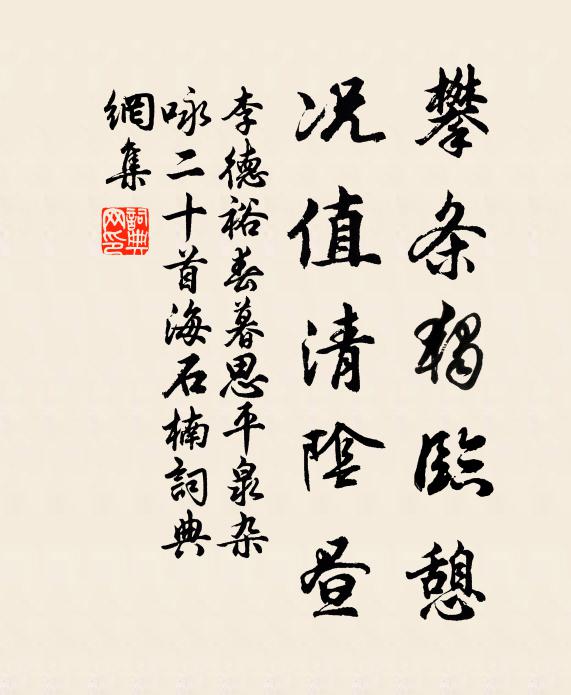 攀条独臨憩
况值清陰昼
李德裕春暮思平泉杂
咏二十首海石楠詞典
網集
詞典网印